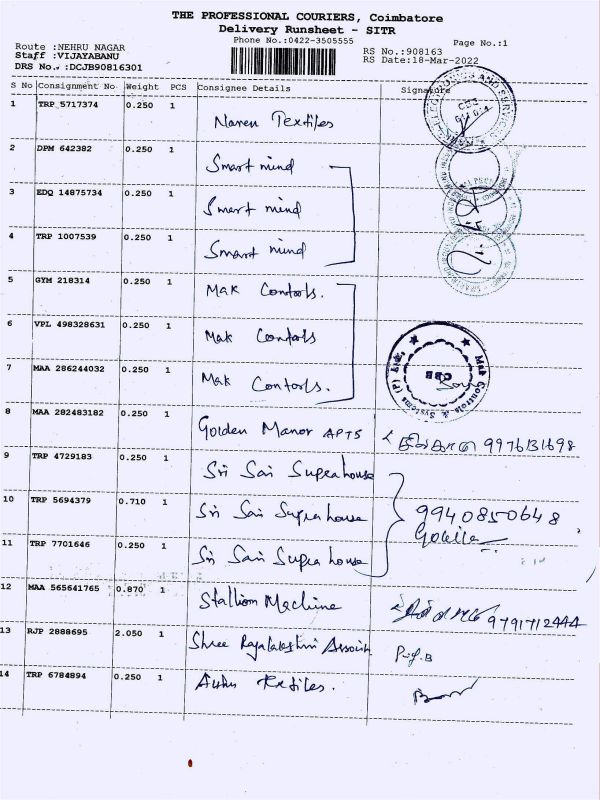 THE PROFESSIONAL COURIERS, Coimbatore
Delivery Runsheet - SITR
Phone No.:0422-3505555
Page No.:1
Route :NEHRU NAGAR
RS No.:908163
Staff :VIJAYABANU
RS Date:18-Mar-2022
DRS No.. :DCJB90816301
S No Consignment No Weight PCS Consignee Details Signature
1 TRP 5717374 0.250 1 Naren Textiles
2 DPM 642382 0.250 1 Smart mind
3 EDQ 14875734 0.250 1 Smart mind
4 TRP 1007539 0.250 1 Smart mind
5 GYM 218314 0.250 1 Mak Contorls.
6 VPL 498328631 0.250 1 Mak Contorls
7 MAA 286244032 0.250 1 Mak Contorls.
Mak Controls & Systems (P) Ltd.
CBE
8 MAA 282483182 0.250 1 Golden Manor APTS 9976131698
9 TRP 4729183 0.250 1 Sri Sai Supra house
10 TRP 5694379 0.710 1 Sri Sai Supra house 9940850648
11 TRP 7701646 0.250 1 Sri Sai Supra house
12 MAA 565641765 0.870 1 Stallion Machine 9791712444
13 RJP 2888695 2.050 1 Shree
14 TRP 6784894 0.250 1 Textiles.